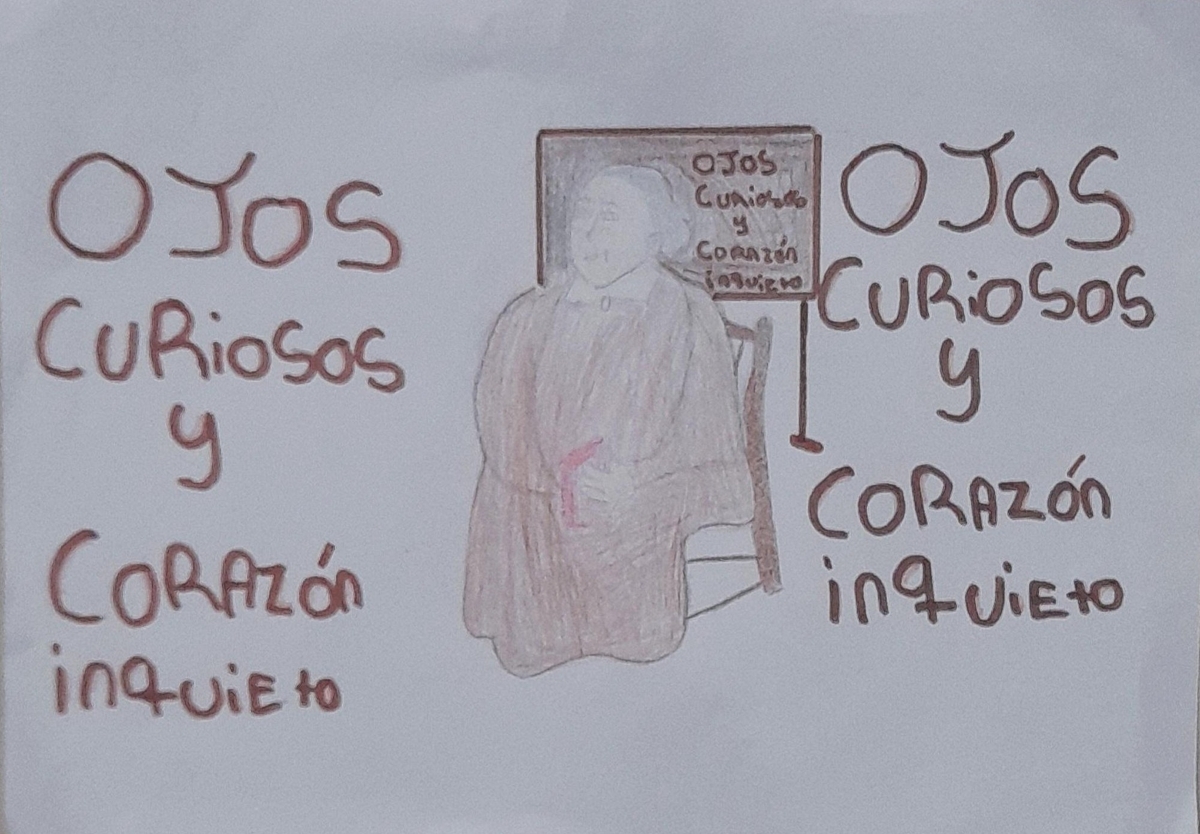 OJOS
CURiOSOS
y
CORAZÓn
inquiEto
OJOS
CURiOSOS
y
CORAZÓn
inquiEto
OJOS
CURiOSOS
y
CORAZÓn
inquiEto